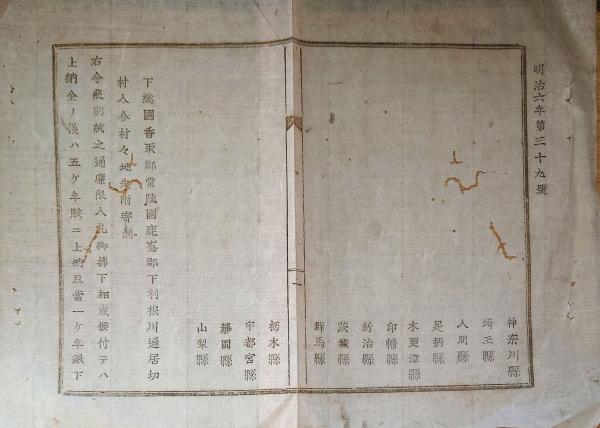 明治六年第三十九號
神奈川縣
埼玉縣
入間縣
足柄縣
木更津縣
印幡縣
新治縣
茨城縣
群馬縣
栃木縣
宇都宮縣
靜岡縣
山梨縣
下總國香取郡常陸國鹿嶌郡下利根川通居切
村入合村々地先附寄洲
右今般別紙之通廉限入札御拂下相成候付テハ
上納金ノ儀ハ五ケ年賦ニ上納且當一ケ年銀下